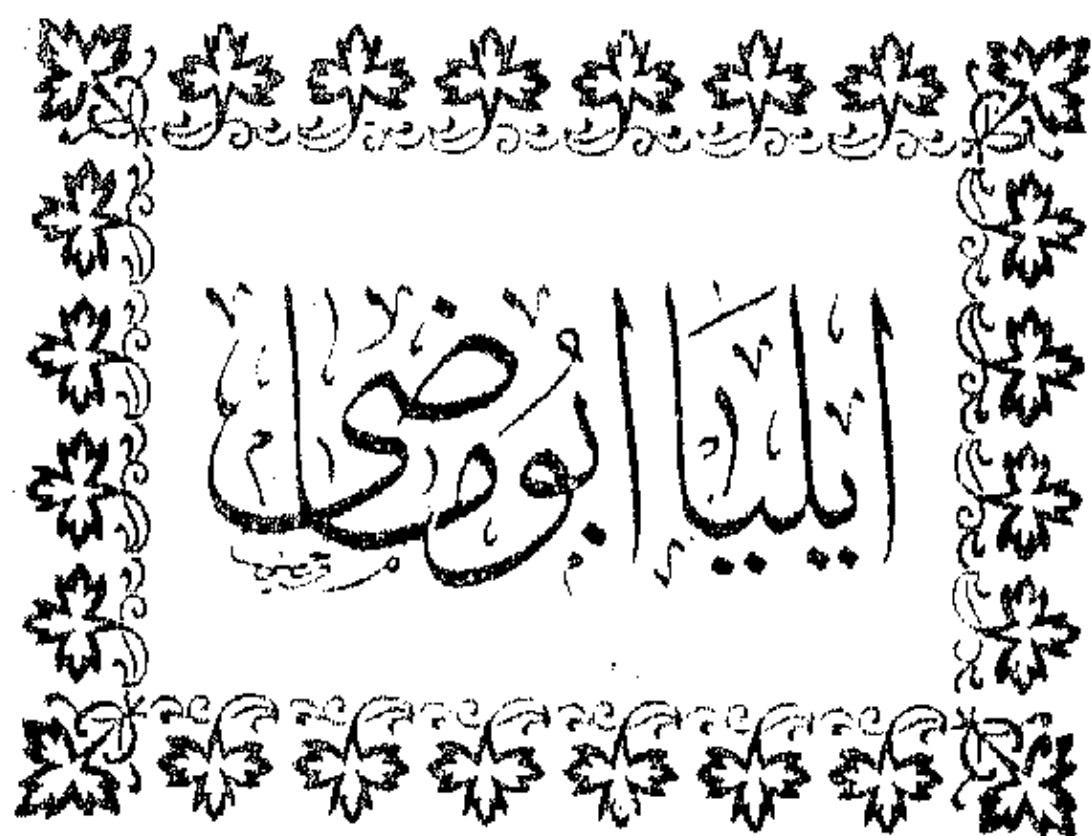 ايليا ابو ماضي